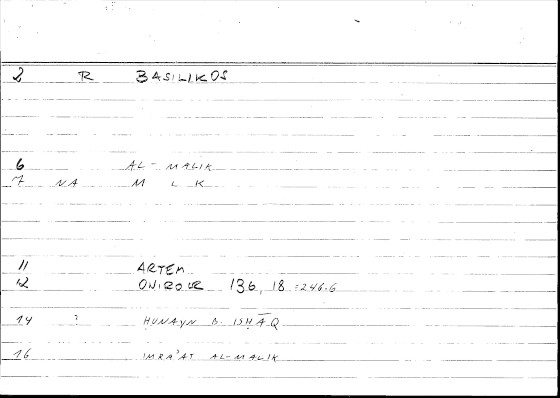 2 R BASILIKOS
6 AL-MALIK
7 NA M L K
11 ARTEM
12 ONIROCR 136, 18 =246.6
14 ? HUNAYN B. ISHĀQ
16 IMRA'AT AL-MALIK